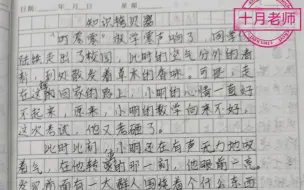 日期:
十月老师
知识拷贝器
"叮零零"放学零声响了,同学们
陆续走出了校园,此时的空气分外的香
甜,到处散发着草木的香味。可是,走
在回家的路上,小明的心情一直好
不起来,原来,小明的数学向来不好,
这次考试,他又考砸了。
此时此刻,小明还在有声无力地叹
着气,在他转弯的那一刻,他眼前一亮
面有一大群人围绕着个什么东西